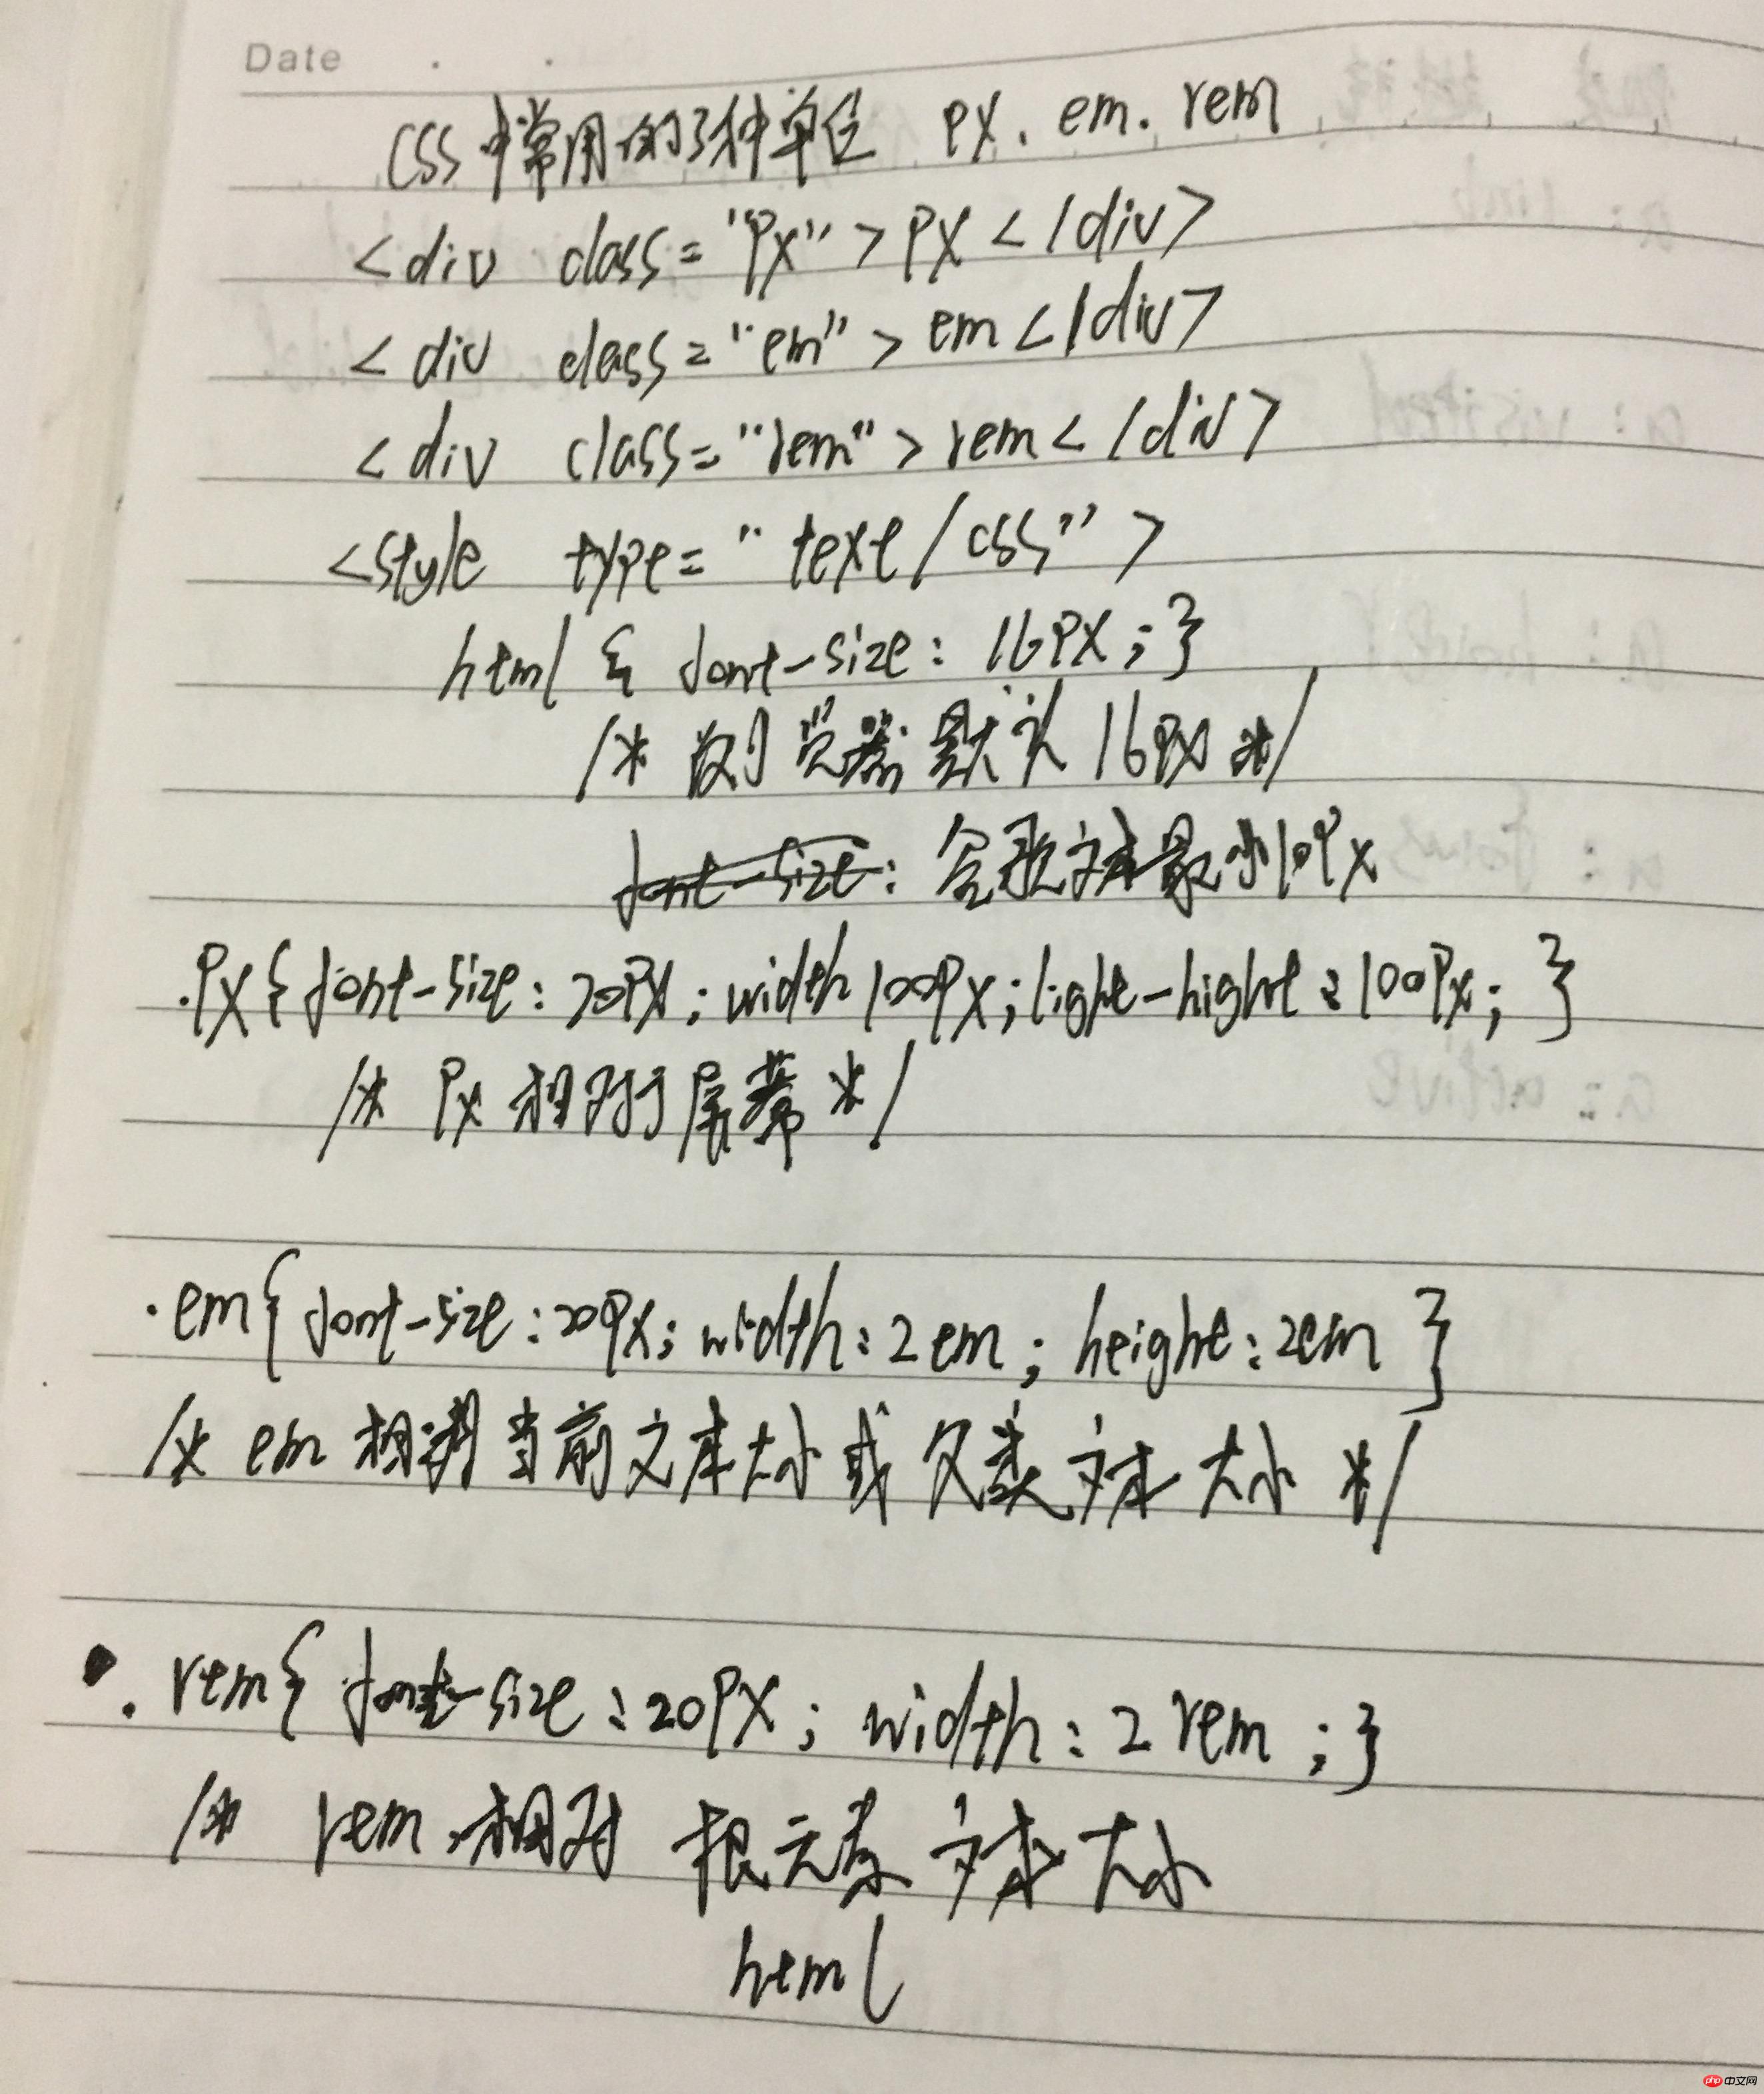 Date
CSS中常用的3种单位 px. em. rem
<div class="px">px</div>
<div class="em">em</div>
<div class="rem">rem</div>
<style type="text/css">
html { font-size: 16px; }
/* 浏览器默认16px */
font-size: 谷歌文本最小10px
.px{font-size: 20px; width 100px; light-hight: 100px; }
/* px 相对于屏幕 */
.em{font-size:20px; width:2em; height:2em }
/* em 相对当前文本大小或父类文本大小 */
.rem{font-size:20px; width:2rem;}
/* rem 相对根元素文本大小
html
php 中文网